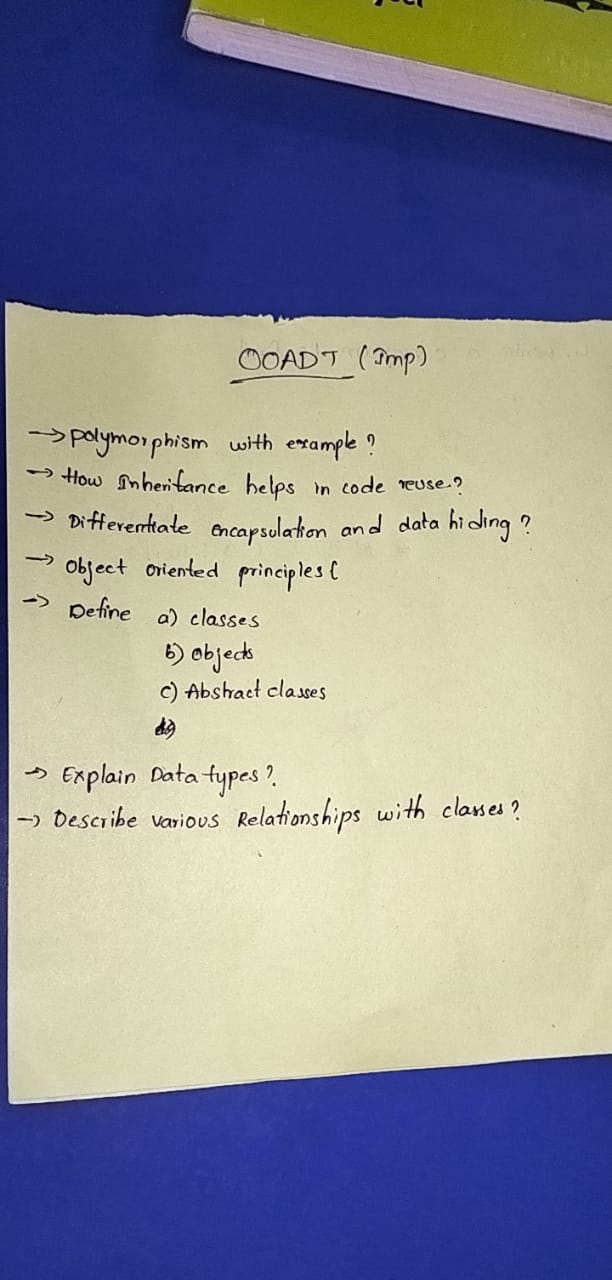 OOADT (Imp)
→ polymorphism with example?
→ How Inheritance helps in code reuse?
→ Differentiate encapsulation and data hiding?
→ Object oriented principles (
→ Define a) classes
b) objects
c) Abstract classes
→ Explain Data types?
→ Describe various Relationships with classes?